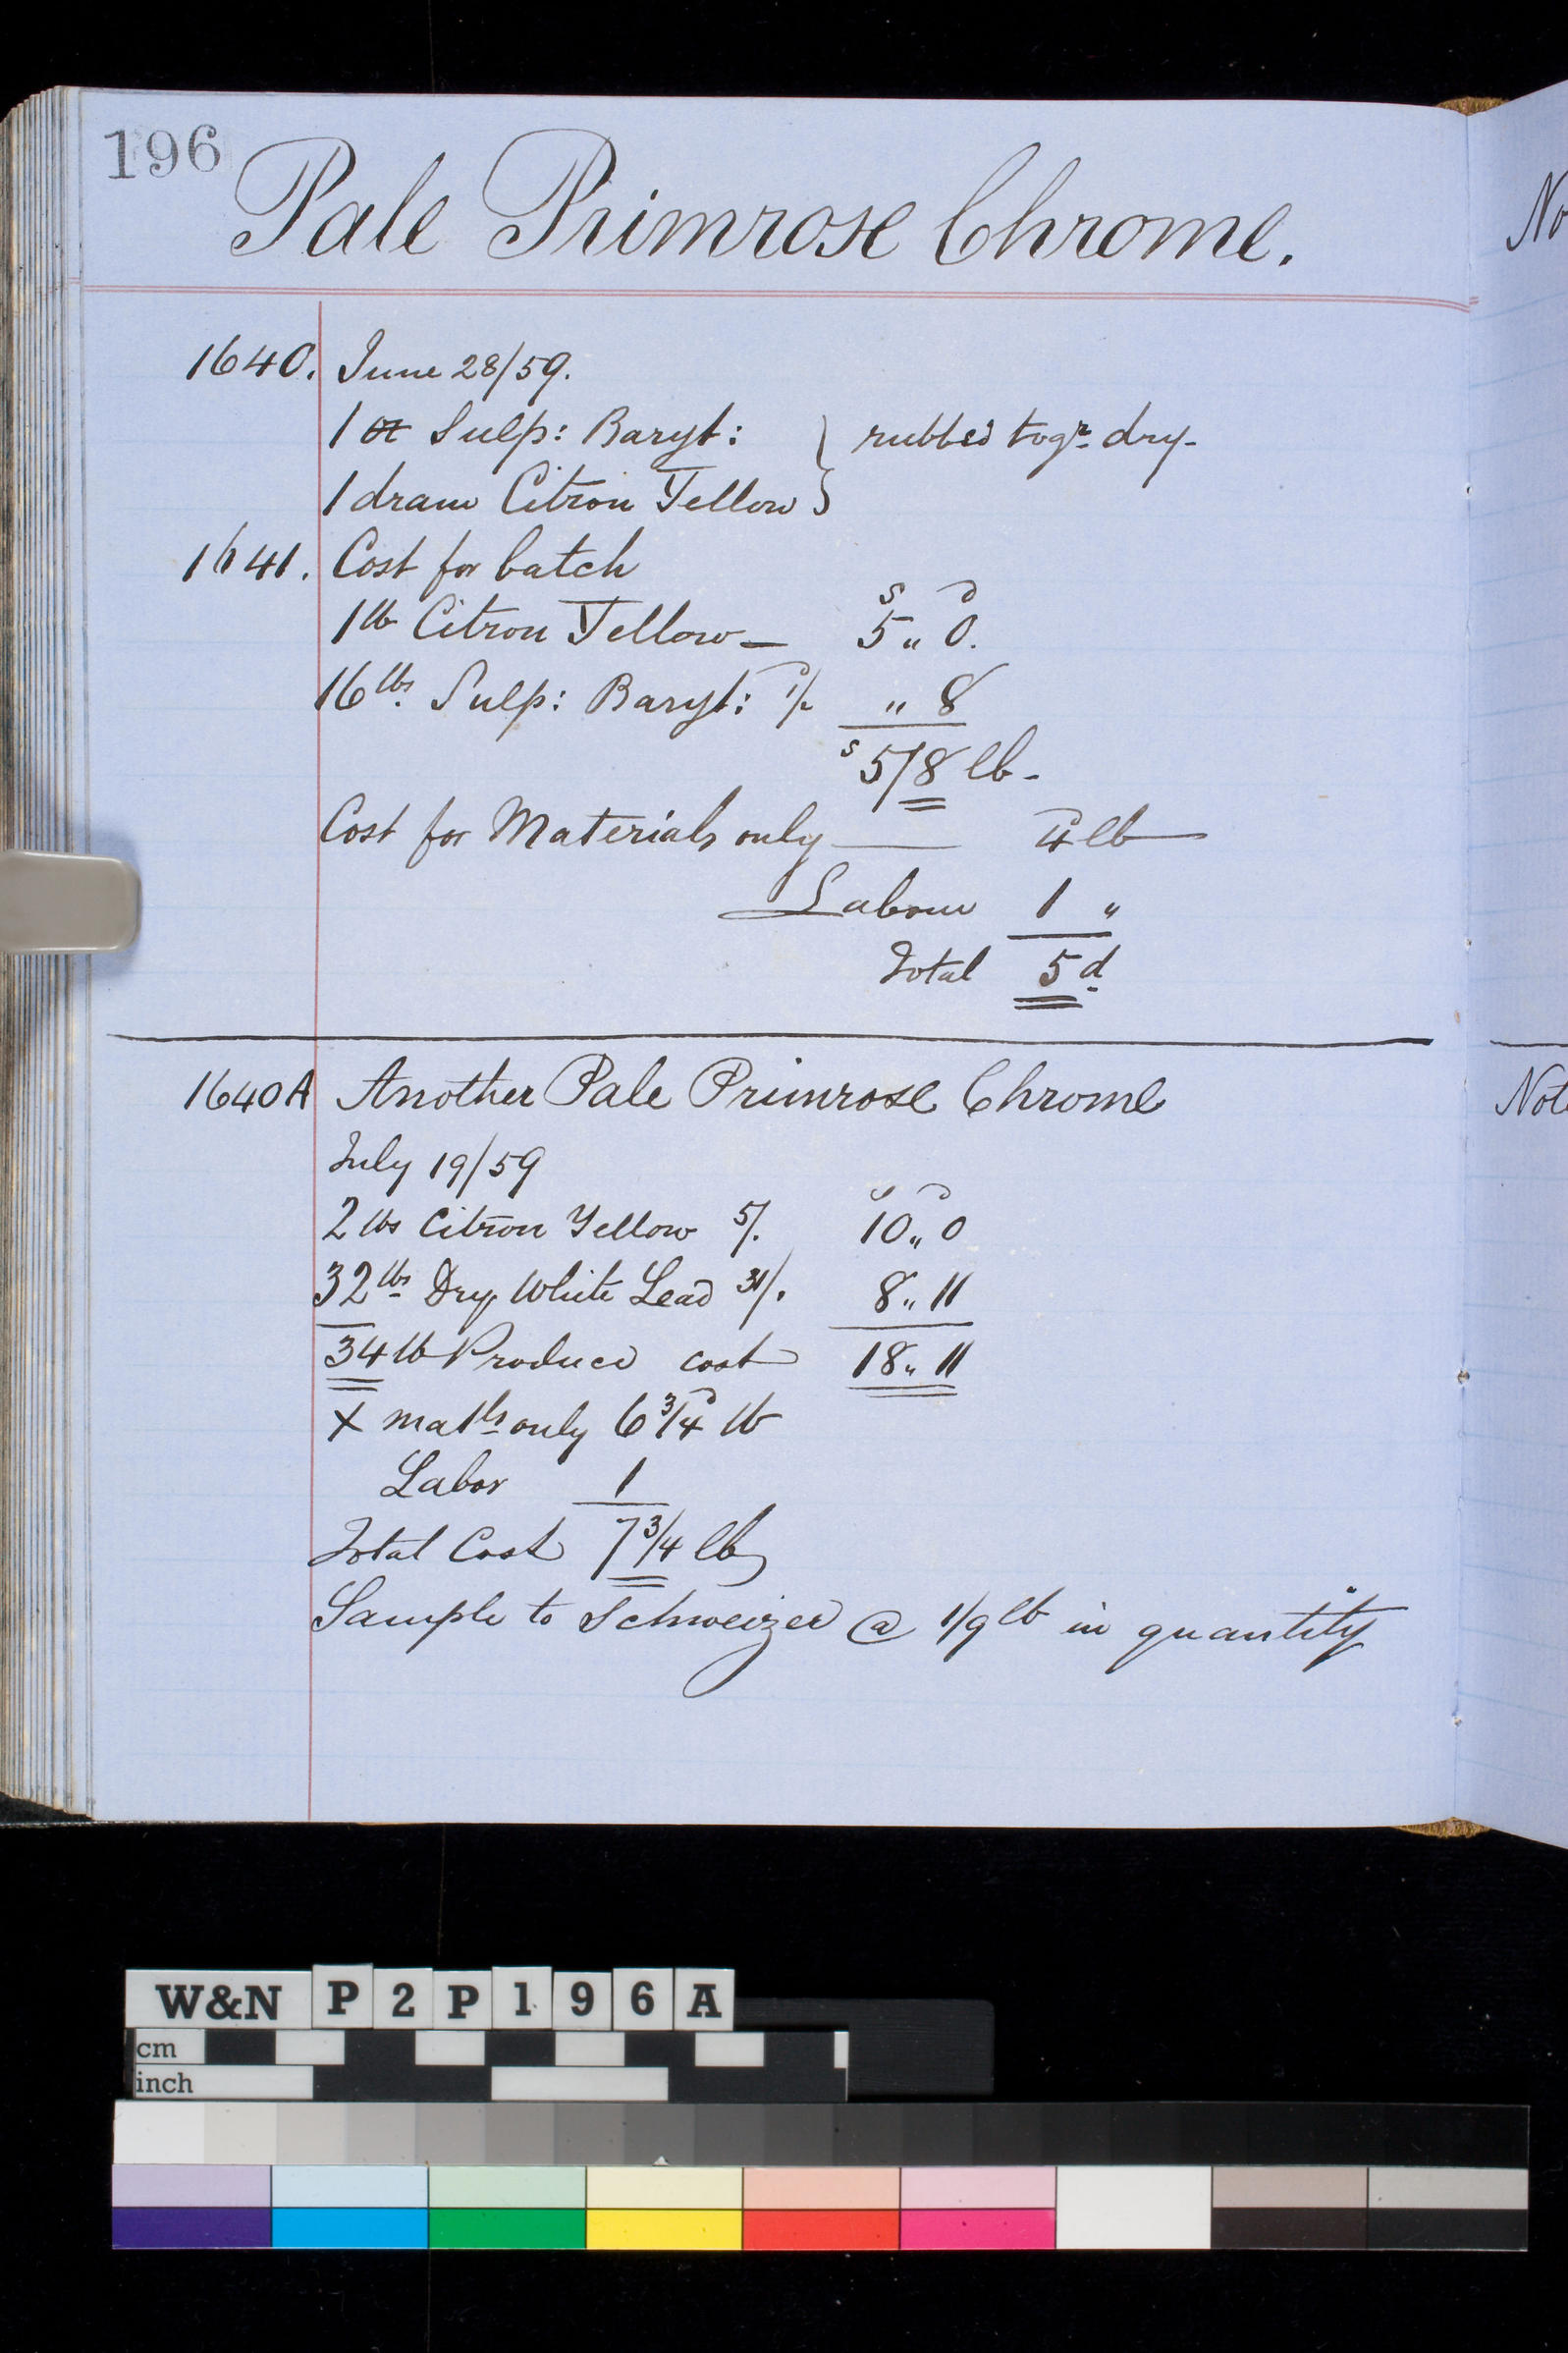 196
Pale Primrose Chrome.
No
1640. June 28/59.
1 oz Sulp: Baryt: } rubbed togr. dry-
1 dram Citron Yellow }
1641. Cost for batch
S D
1 lb Citron Yellow — 5 „ 0.
16 lbs. Sulp: Baryt: „ 8
s 5/8 lb-
Cost for Materials only — 4 lb
Labour 1 „
Total 5d
1640A Another Pale Primrose Chrome
Note
July 19/59
s d
2 lbs Citron Yellow 5/. 10 „ 0
32 lbs Dry White Lead 31/. 8 „ 11
34 lb Produce cost 18 „ 11
X matls only 6 3/4 d lb
Labor 1
Total Cost 7 3/4 lb
Sample to Schweizer @ 1/9 lb in quantity
W&N P2P196A
cm
inch